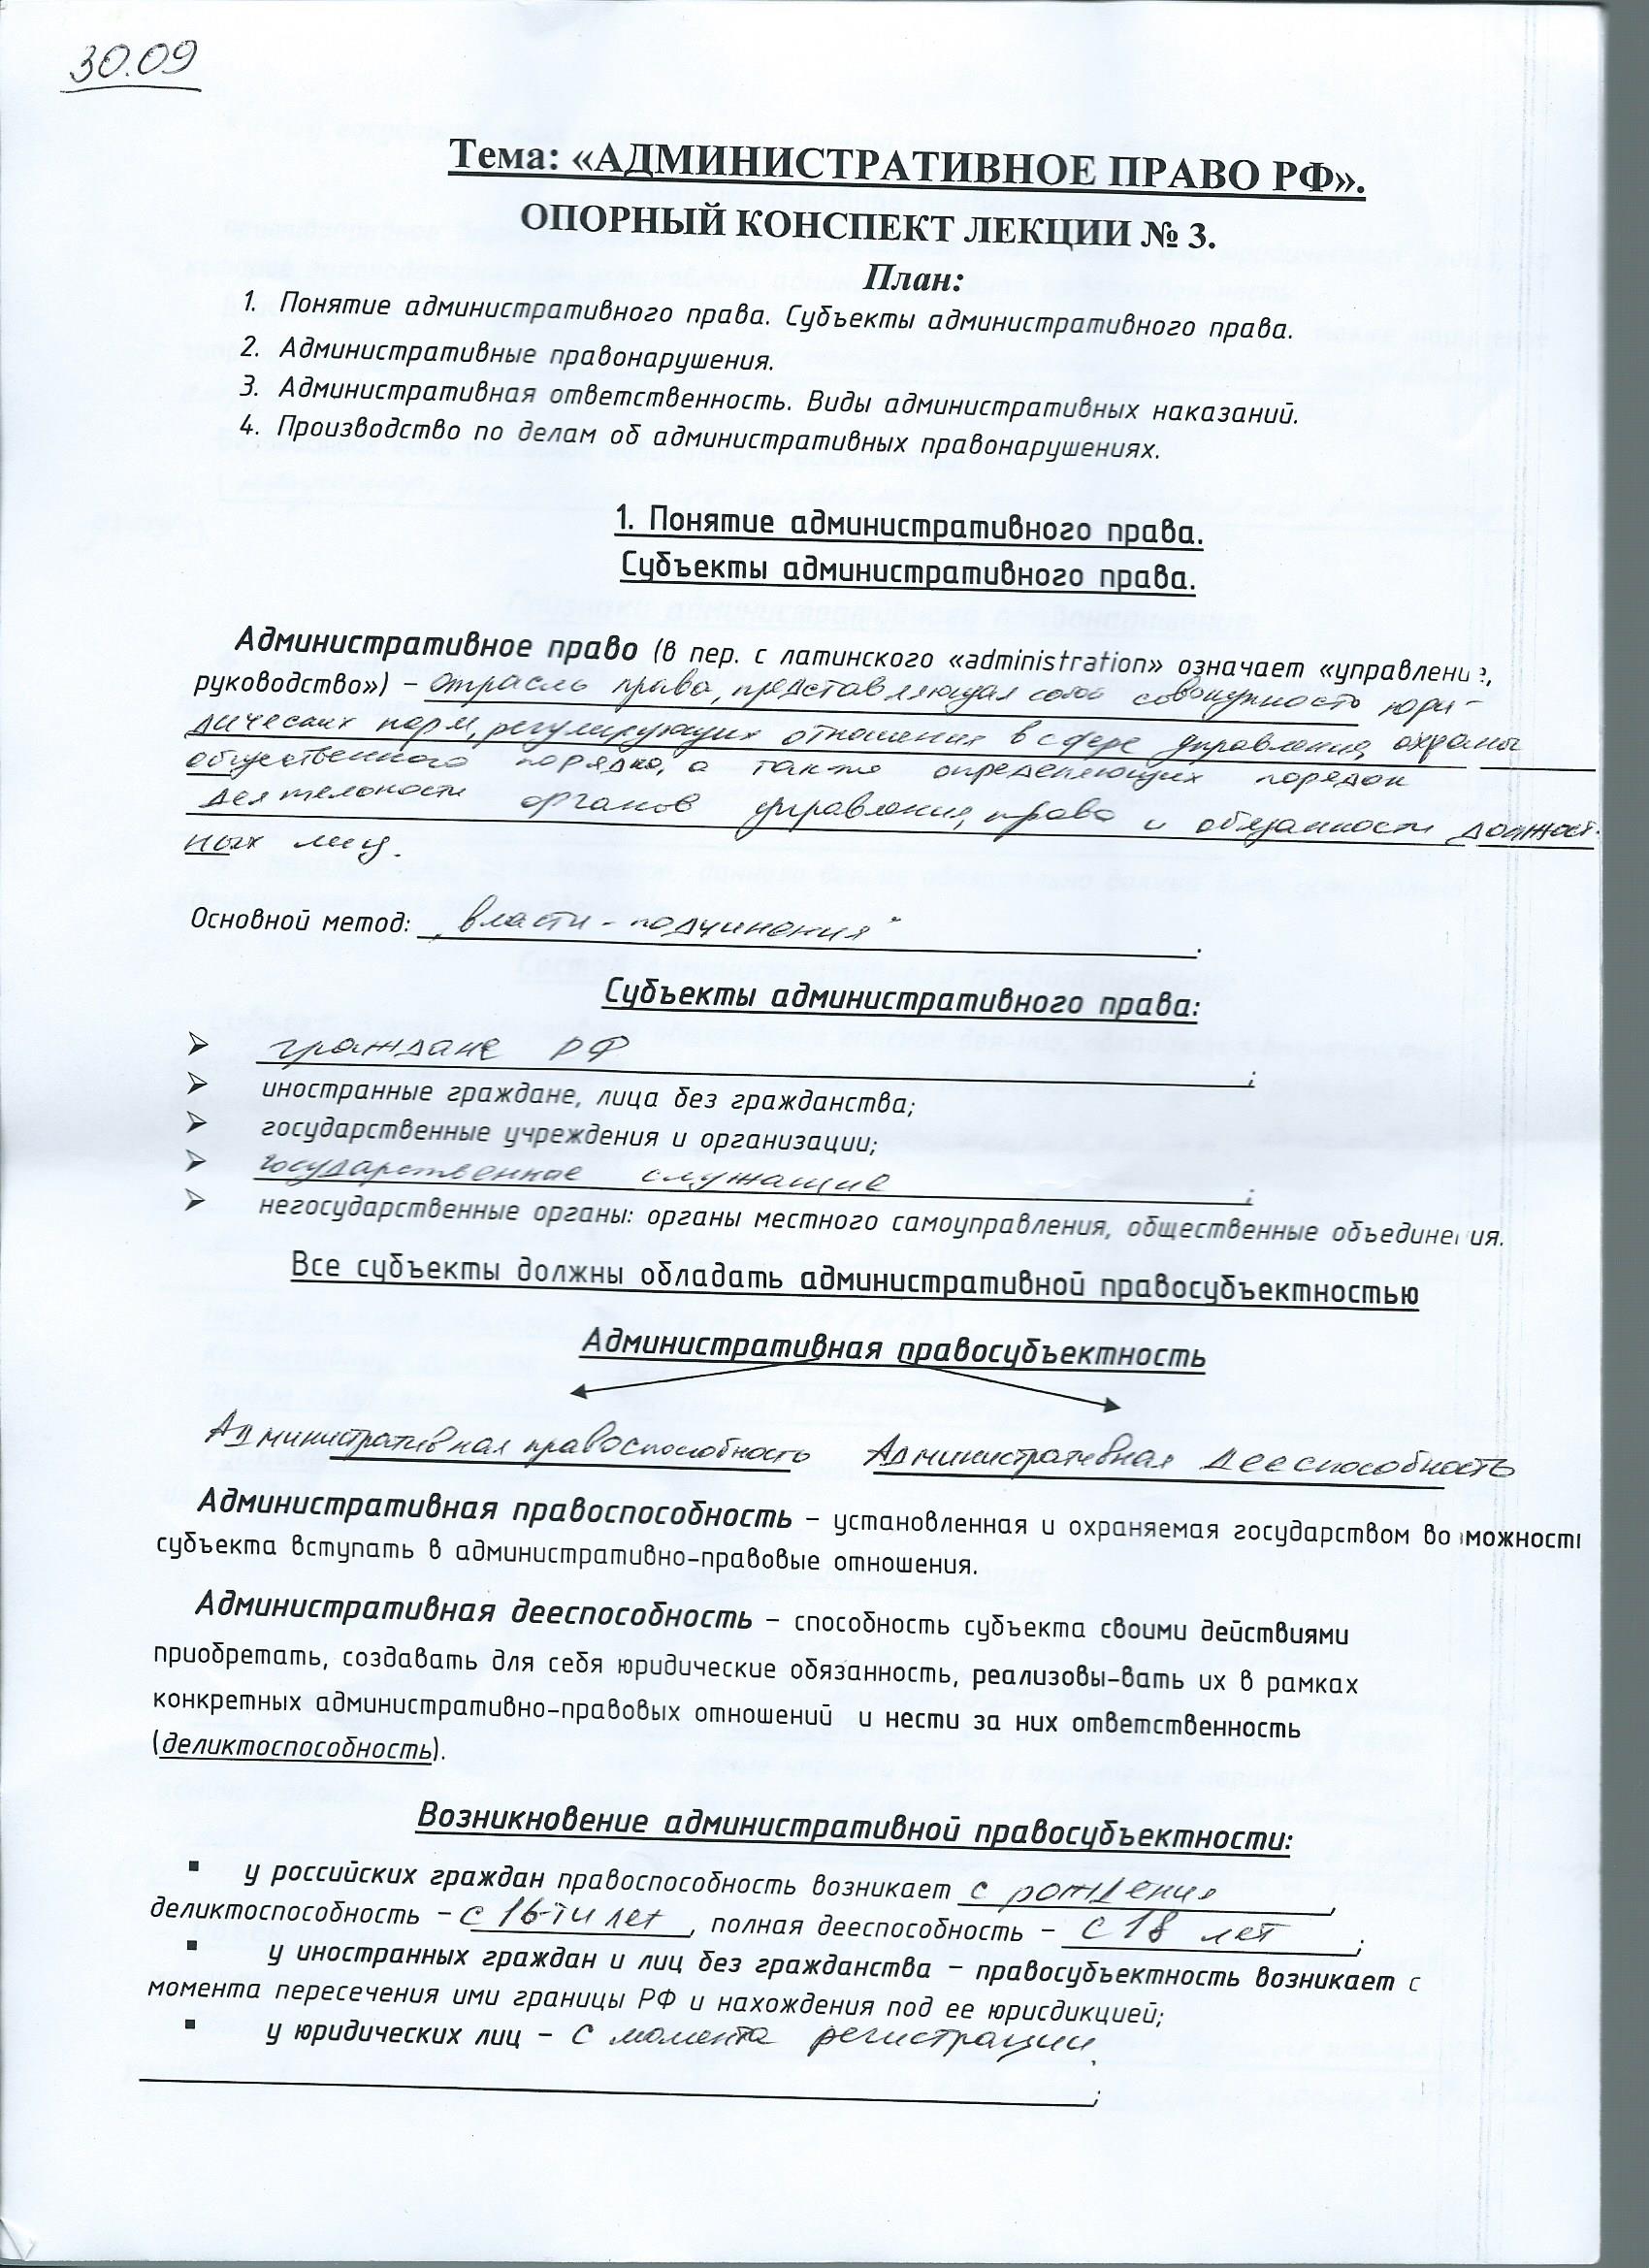 30.09
Тема: «АДМИНИСТРАТИВНОЕ ПРАВО РФ».
ОПОРНЫЙ КОНСПЕКТ ЛЕКЦИИ № 3.
План:
1. Понятие административного права. Субъекты административного права.
2. Административные правонарушения.
3. Административная ответственность. Виды административных наказаний.
4. Производство по делам об административных правонарушениях.
1. Понятие административного права.
Субъекты административного права.
Административное право (в пер. с латинского «administration» означает «управление,
руководство») – отрасль права, представляющая собой совокупность юри-
дических норм, регулирующих отношения в сфере управления, охраны
общественного порядка, а также определяющих порядок
деятельности органов управления, права и обязанности должност-
ных лиц.
Основной метод: „власти - подчинения"
Субъекты административного права:
➢ граждане РФ ;
➢ иностранные граждане, лица без гражданства;
➢ государственные учреждения и организации;
➢ государственные служащие ;
➢ негосударственные органы: органы местного самоуправления, общественные объединения.
Все субъекты должны обладать административной правосубъектностью
Административная правосубъектность
Административная правоспособность Административная дееспособность
Административная правоспособность – установленная и охраняемая государством возможность
субъекта вступать в административно-правовые отношения.
Административная дееспособность – способность субъекта своими действиями
приобретать, создавать для себя юридические обязанность, реализовы-вать их в рамках
конкретных административно-правовых отношений и нести за них ответственность
(деликтоспособность).
Возникновение административной правосубъектности:
▪ у российских граждан правоспособность возникает с рождения ,
деликтоспособность – с 16-ти лет , полная дееспособность – с 18 лет ;
▪ у иностранных граждан и лиц без гражданства – правосубъектность возникает с
момента пересечения ими границы РФ и нахождения под ее юрисдикцией;
▪ у юридических лиц – с момента регистрации.
;